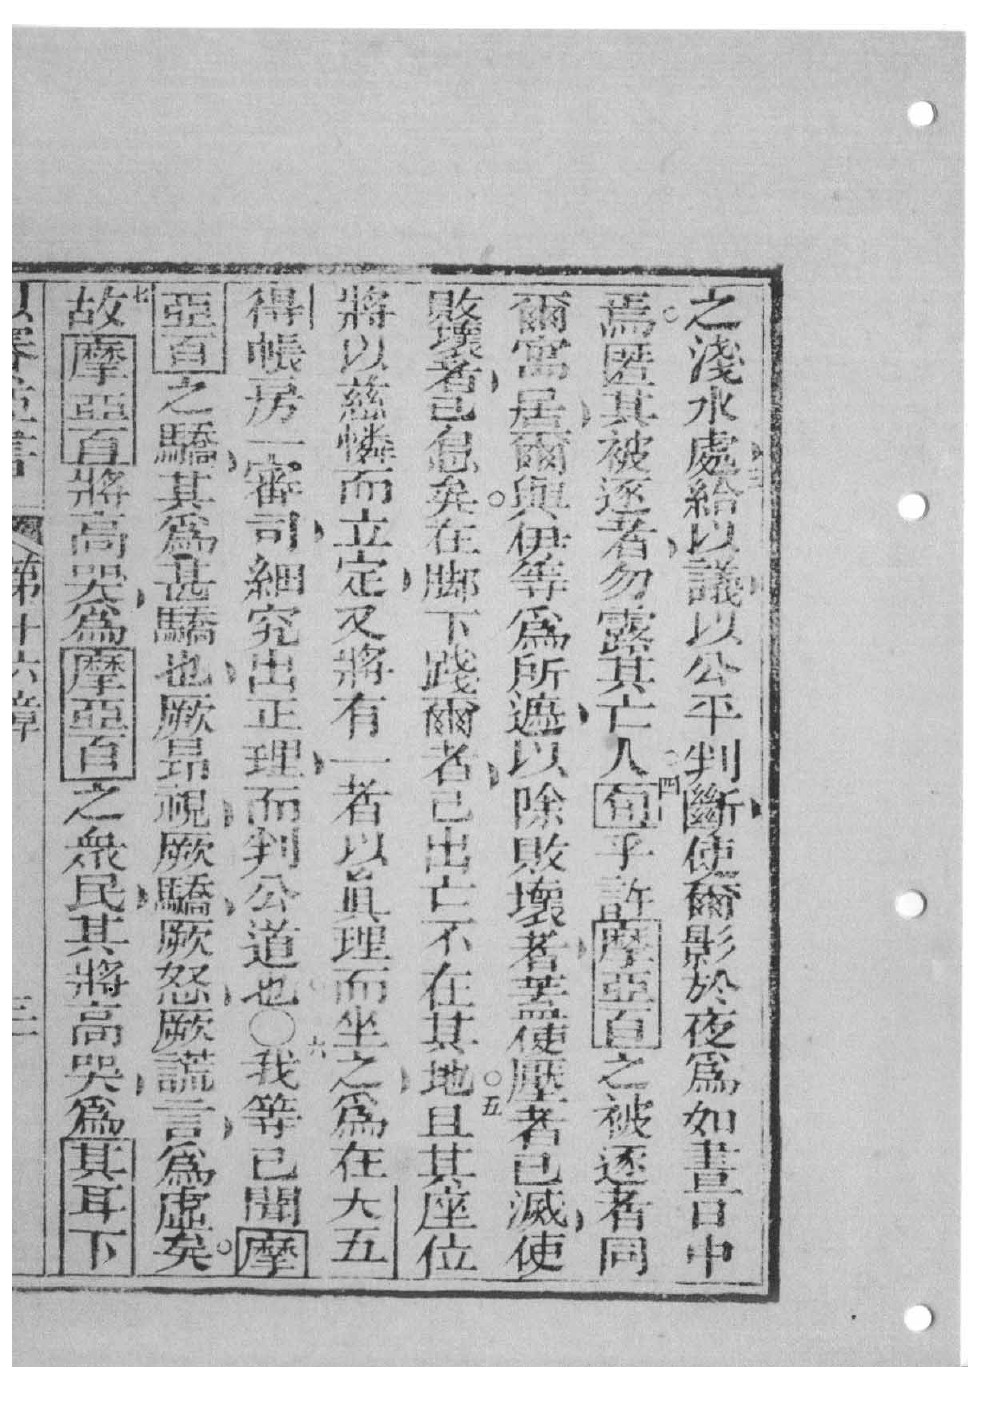 之淺水處三給以議以公平判斷使爾影於夜爲如晝日中
焉匿其被逐者勿露其亡人四旬乎許摩亞百之被逐者同
爾寓居爾與伊等爲所遮以除敗壞者蓋使壓者已滅使
敗壞者已息矣在脚下踐爾者已出亡不在其地五且其座位
將以慈憐而立定又將有一者以眞理而坐之爲在大五
得帳房一審司細究出正理而判公道也〇六我等已聞摩
亞百之驕其爲甚驕也厥昻視厥驕厥怒厥謊言爲虛矣
七故摩亞百將高哭爲摩亞百之衆民其將高哭爲其耳下
以賽亞書 第十六章